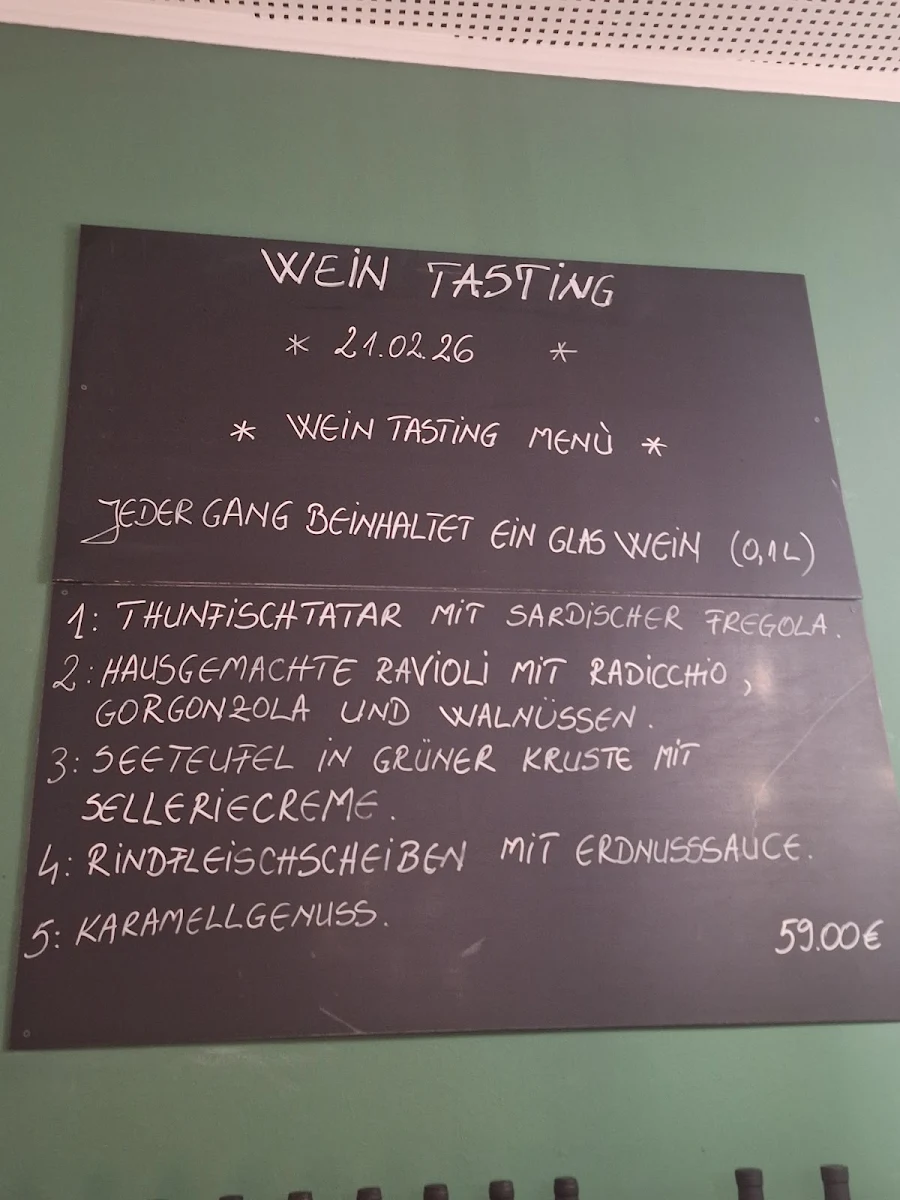 WEIN TASTING
* 21.02.26 *
* WEIN TASTING MENÙ *
JEDER GANG BEINHALTET EIN GLAS WEIN (0,1L)
1: THUNFISCHTATAR MIT SARDISCHER FREGOLA.
2: HAUSGEMACHTE RAVIOLI MIT RADICCHIO,
GORGONZOLA UND WALNÜSSEN.
3: SEETEUFEL IN GRÜNER KRUSTE MIT
SELLERIECREME.
4: RINDFLEISCHSCHEIBEN MIT ERDNUSSSAUCE.
5: KARAMELLGENUSS.
59.00€